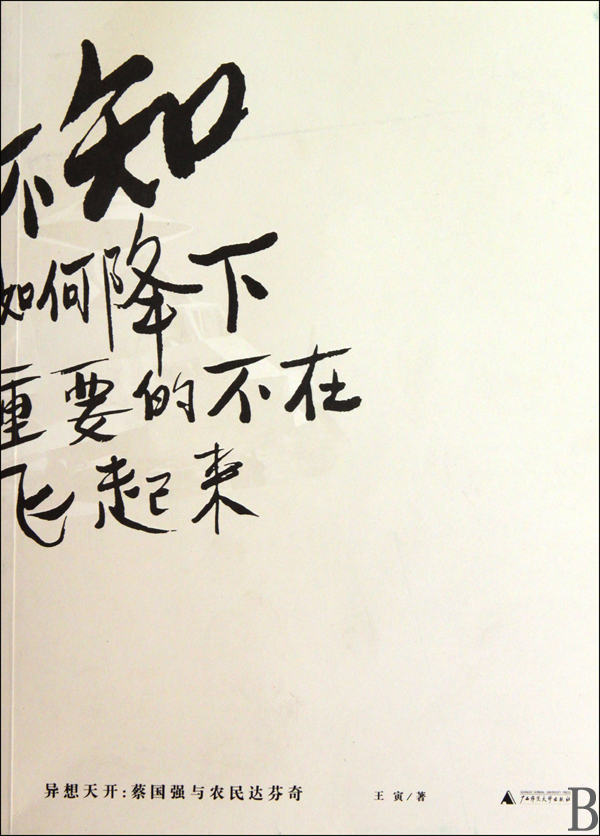 不知
如何降下
重要的不在
飞起来
异想天开:蔡国强与农民达芬奇
王寅/著
广西师范大学出版社
B